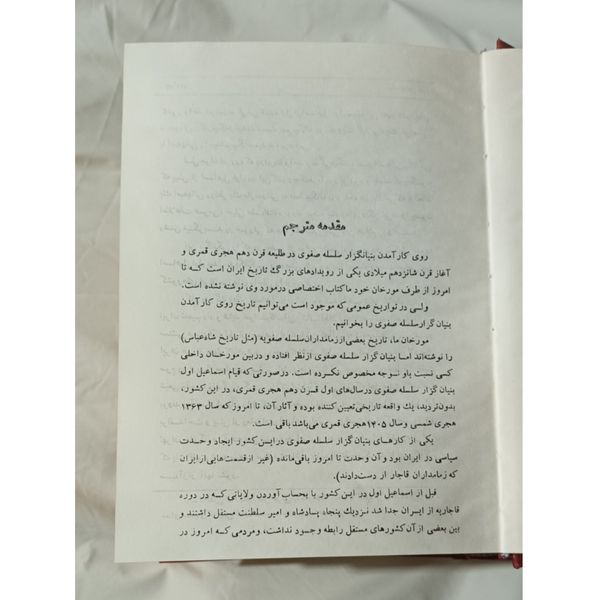 مقدمه مترجم
روی کار آمدن بنیانگزار سلسله صفوی در طلیعه قرن دهم هجری قمری و
آغاز قرن شانزدهم میلادی یکی از رویدادهای بزرگ تاریخ ایران است که تا
امروز از طرف مورخان خود ما کتاب اختصاصی در مورد وی نوشته نشده است.
ولی در تواریخ عمومی که موجود است می‌توانیم تاریخ روی کار آمدن
بنیان گزار سلسله صفوی را بخوانیم.
مورخان ما، تاریخ بعضی از زمامداران سلسله صفویه (مثل تاریخ شاه‌عباس)
را نوشته‌اند اما بنیان گزار سلسله صفوی از نظر افتاده و در بین مورخان داخلی
کسی نسبت باو توجه مخصوص نکرده است. در صورتی که قیام اسماعیل اول
بنیان گزار سلسله صفوی در سال‌های اول قرن دهم هجری قمری، در این کشور،
بدون تردید، یك واقعه تاریخی تعیین کننده بوده و آثار آن، تا امروز که سال ۱۳۶۳
هجری شمسی و سال ۱۴۰۵ هجری قمری می‌باشد باقی است.
یکی از کارهای بنیان گزار سلسله صفوی در این کشور ایجاد وحدت
سیاسی در ایران بود و آن وحدت تا امروز باقی مانده (غیر از قسمت‌هایی از ایران
که زمامداران قاجار از دست دادند).
قبل از اسماعیل اول در این کشور با بحساب آوردن ولایاتی که در دوره
قاجاریه از ایران جدا شد نزدیك پنجاه پادشاه و امیر سلطنت مستقل داشتند و
بین بعضی از آن کشورهای مستقل رابطه وجود نداشت، و مردمی که امروز در